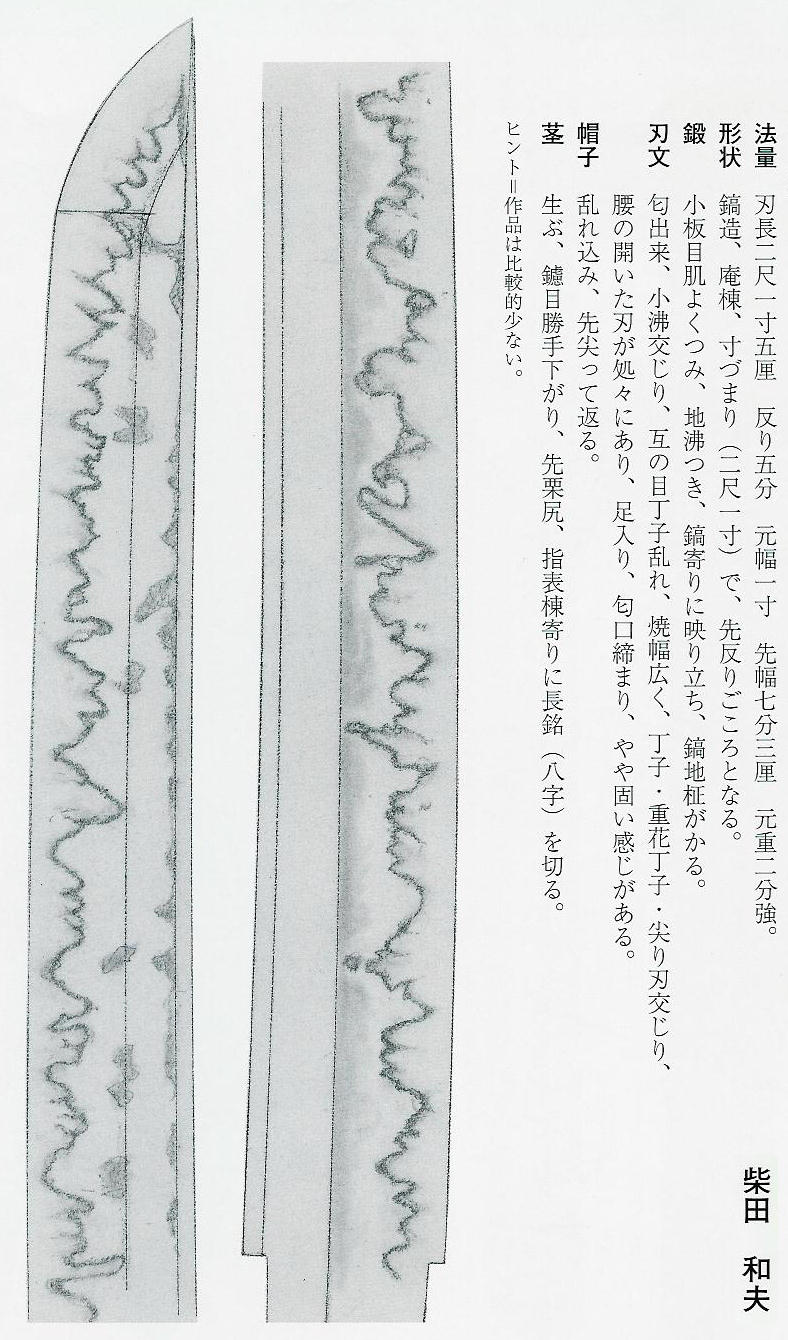 法量　刃長二尺一寸五厘　反り五分　元幅一寸　先幅七分三厘　元重二分強。
形状　鎬造、庵棟、寸づまり（二尺一寸）で、先反りごころとなる。
鍛　小板目肌よくつみ、地沸つき、鎬寄りに映り立ち、鎬地柾がかる。
刃文　匂出来、小沸交じり、互の目丁子乱れ、焼幅広く、丁子・重花丁子・尖り刃交じり、
腰の開いた刃が処々にあり、足入り、匂口締まり、やや固い感じがある。
帽子　乱れ込み、先尖って返る。
茎　生ぶ、鑢目勝手下がり、先栗尻、指表棟寄りに長銘（八字）を切る。
ヒント＝作品は比較的少ない。
柴田　和夫